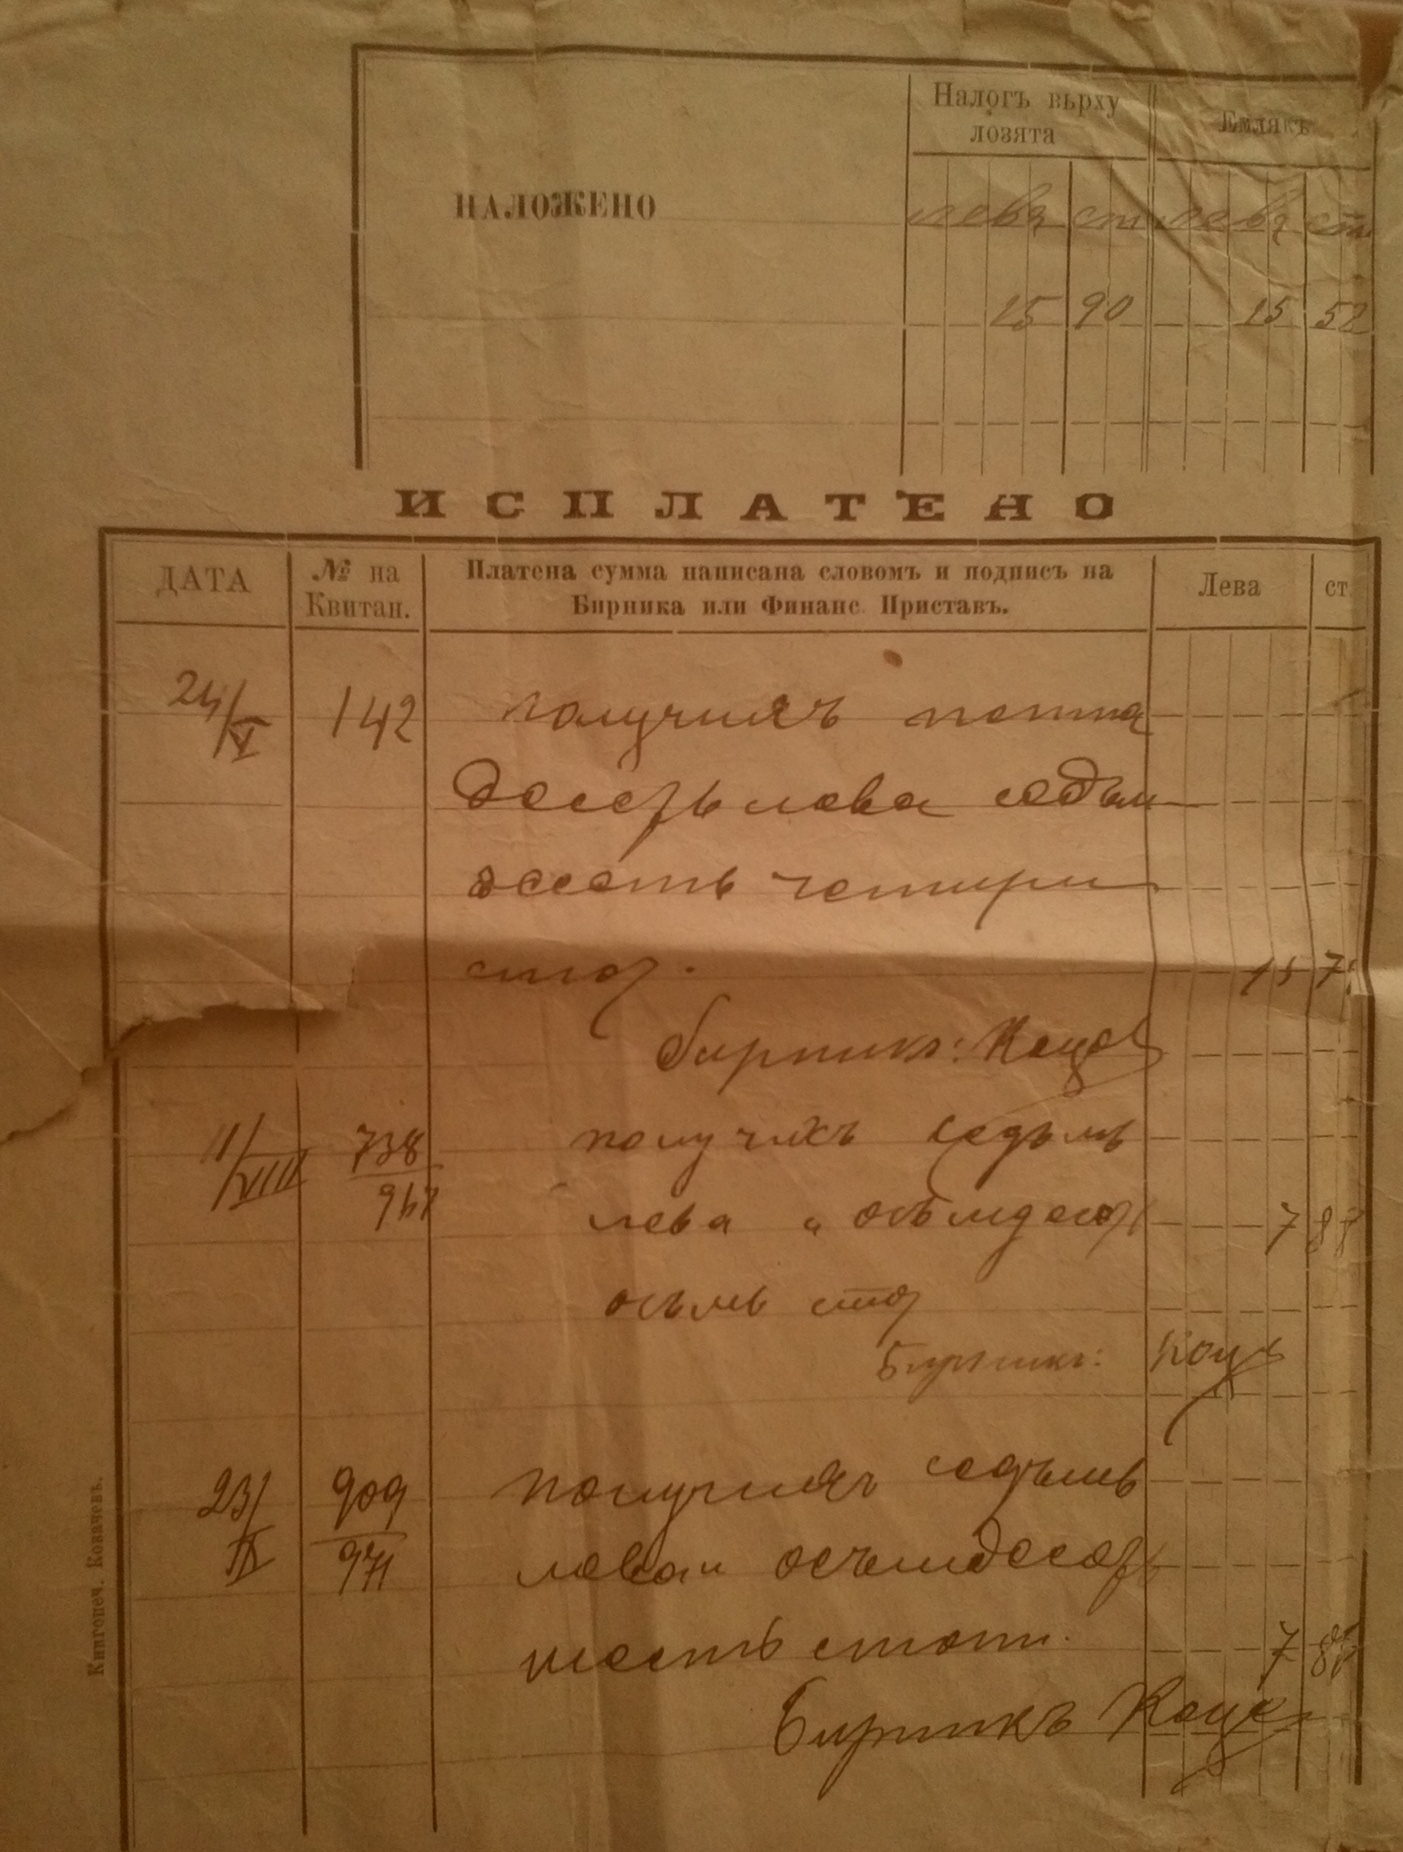 Налогъ върху Емлякъ
лозята
НАЛОЖЕНО лева ст лева ст
15 90 15 52
ИСПЛАТЕНО
ДАТА № на Платена сумма написана словомъ и подписъ на Лева ст
Квитан. Бирника или Финанс. Приставъ.
24/V 142 получихъ петна
десетъ лева седъм
десетъ четири
стот. 15 7
Бирникъ: Коцов
11/VIII 738 получихъ седъмь
967 лева и осъмдесет 7 88
осъмь стот
Бирникъ: Коцв
23/IX 909 получихъ седъмь
971 лева и осъмдесет
шесть стоти. 7 86
Бирникъ Коцов
Книгопеч. Ковачевъ.